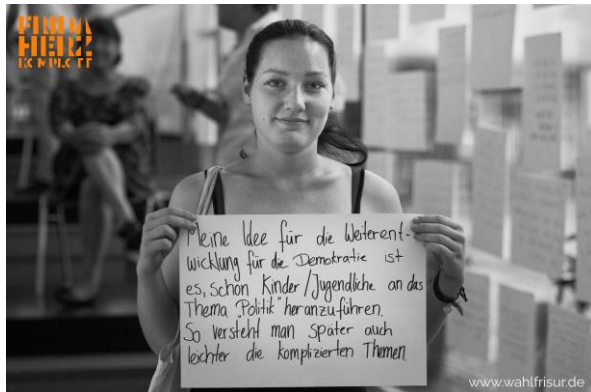 FRIDA
HERZ
KOMPLOTT
Meine Idee für die Weiterent-
wicklung für die Demokratie ist
es, schon Kinder/Jugendliche an das
Thema "Politik" heranzuführen.
So versteht man später auch
leichter die komplizierten Themen.
www.wahlfrisur.de